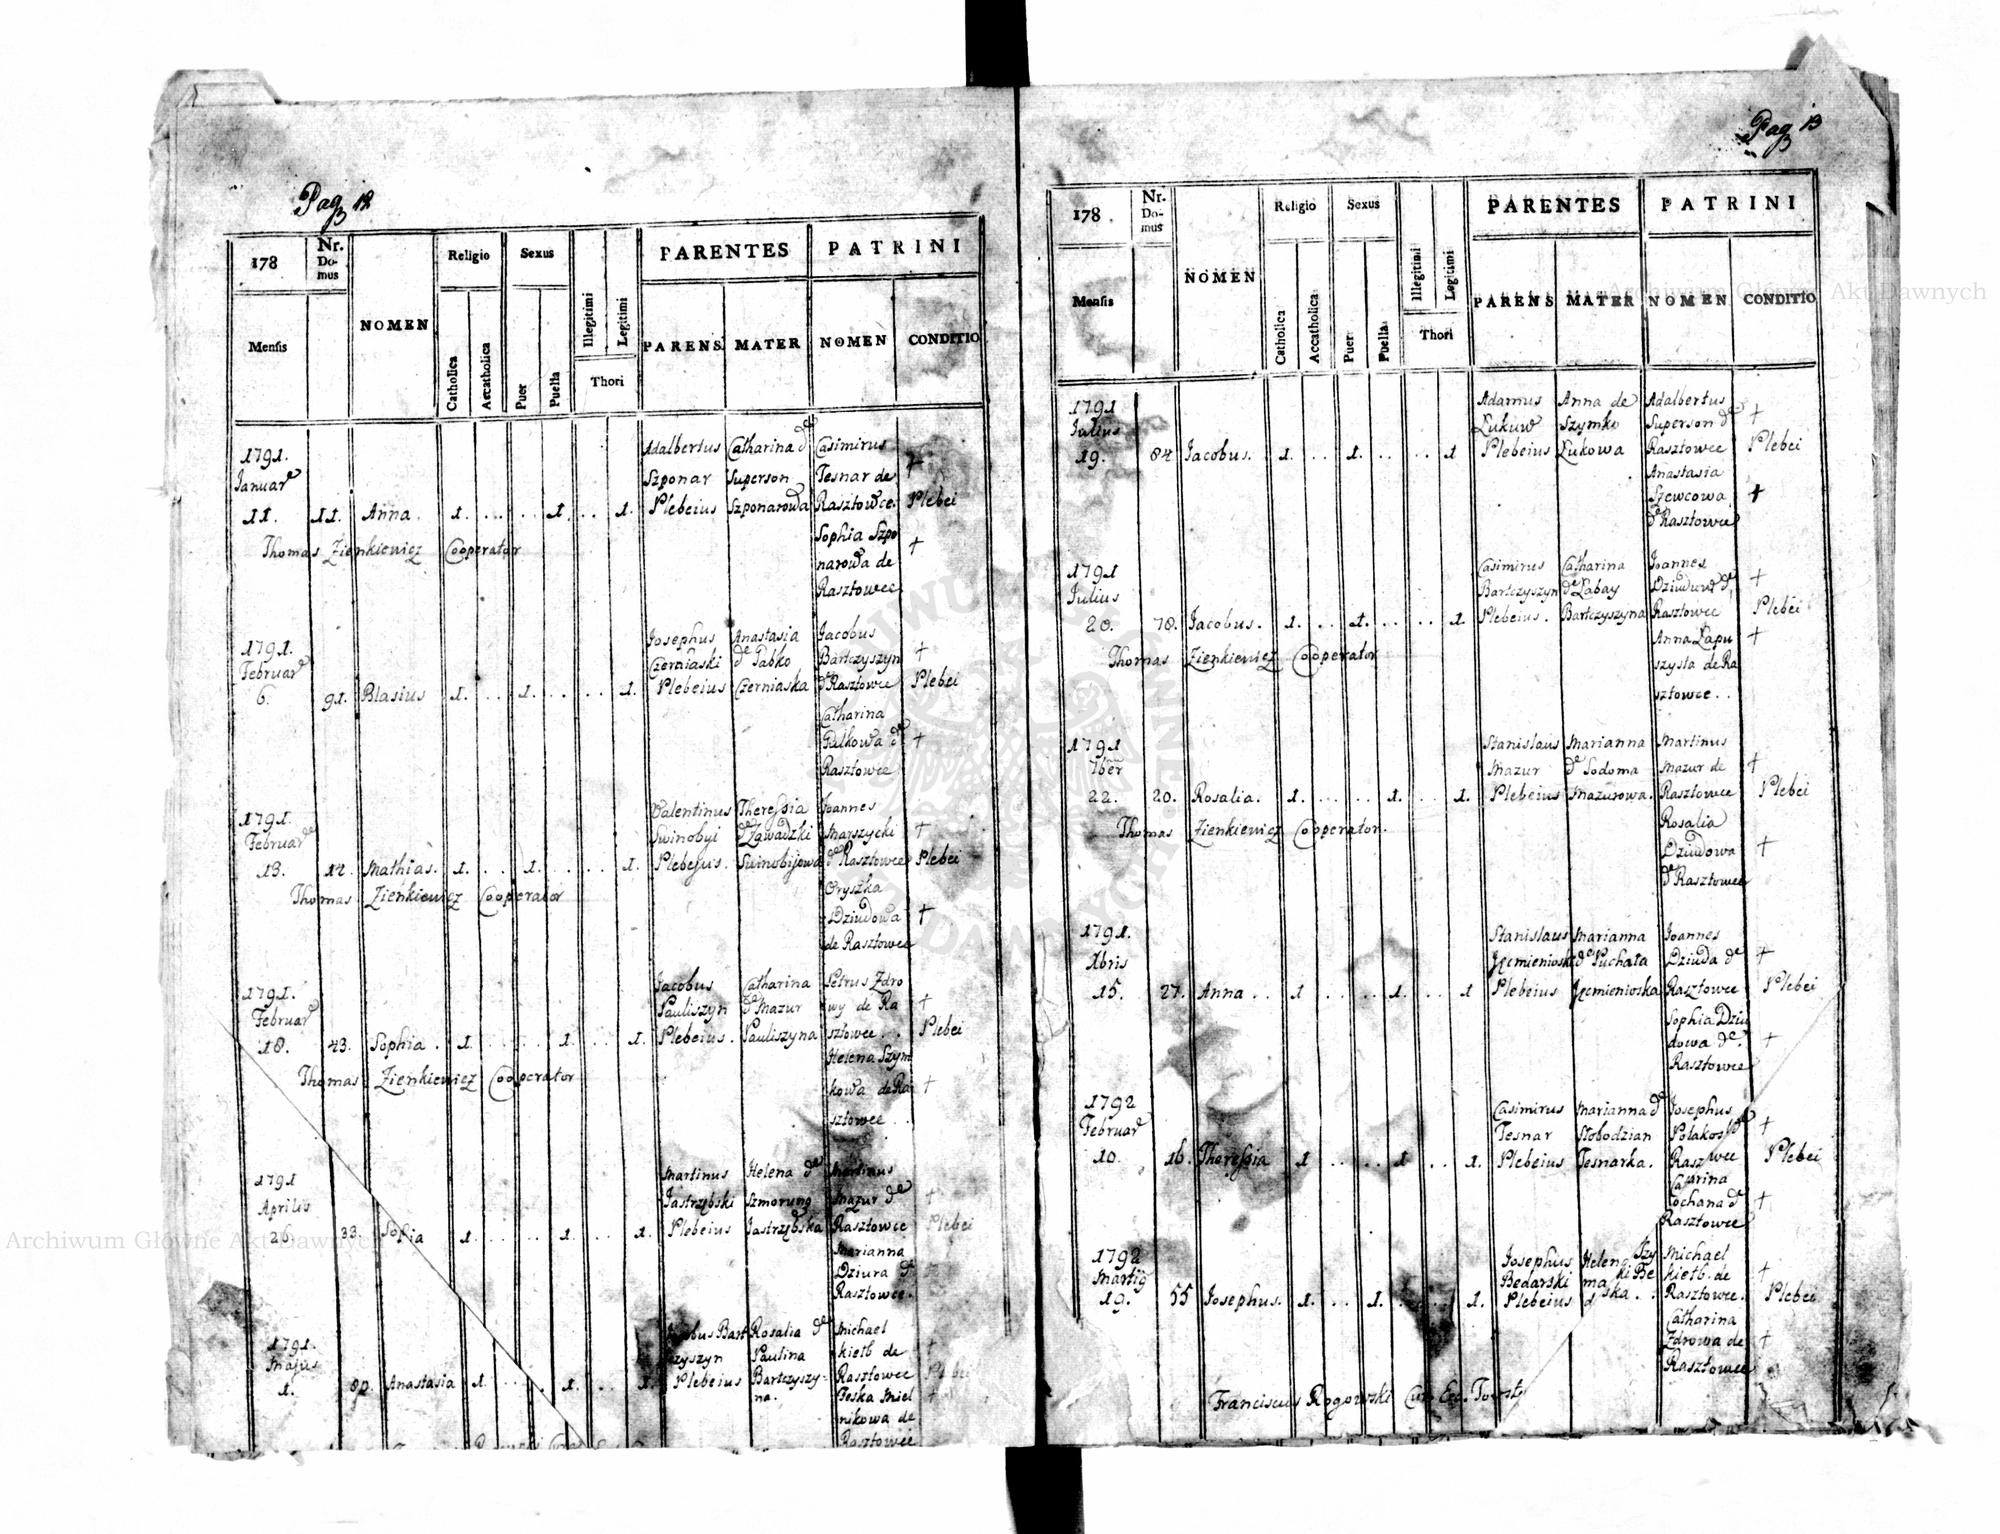 Pag 12
178
Nr. Do-mus
NOMEN
Religio
Sexus
PARENTES
PATRINI
Mensis
Catholica
Accatholica
Puer
Puella
Illegitimi
Legitimi
Thori
PARENS
MATER
NOMEN
CONDITIO
Adalbertus Catharina de Casimirus
1791.
Januar
Szponar Superson Tesnar de †
11. 11. Anna. 1. . . . . 1. . . 1. Plebeius Szponarowa Rasztowce. Plebei
Thomas Zienkiewicz Cooperator
Sophia Szpo
narowa de †
Rasztowce
Josephus Anastasia Jacobus
1791.
Februar
Czerniaski de Gabko Bartczyszyn †
6. 91. Blasius 1. . . 1. . . . . 1. Plebeius Czerniaska de Rasztowce Plebei
Catharina
Palkowa de †
Rasztowce
Valentinus Theressia Joannes
1791.
Februar
Swinobyi de Zawadzki Marszycki †
13. 12. Mathias. 1. . . 1. . . . . 1. Plebejus. Swinobijowa de Rasztowce Plebei
Thomas Zienkiewicz Cooperator
Oryszka
Dziudowa †
de Rasztowce
Jacobus Catharina Petrus Zdro
1791.
Februar
Pauliszyn de Mazur wy de Ra †
18. 43. Sophia . 1. . . . . 1. . . 1. Plebeius. Pauliszyna sztowce . . Plebei
Helena Szym
Thomas Zienkiewicz Cooperator
kowa de Ra †
sztowce . .
Martinus Helena de Martinus
1791
Aprilis
Jastrzębski Szmorung Mazur de †
26. 33. Sofia 1. . . . . 1. . . 1. Plebeius Jastrzębska Rasztowce Plebei
Marianna
Dziura de
Rasztowce.
Jacobus Bart Rosalia de Michael
1791.
Majus
czyszyn Paulina kietb de †
1. 80. Anastasia 1. . . . . 1. . . 1. Plebeius Bartczyszy- Rasztowce Plebei
na. Feska Miel †
nikowa de
Rasztowce
Pag 13
178
Nr. Do-mus
NOMEN
Religio
Sexus
PARENTES
PATRINI
Mensis
Catholica
Accatholica
Puer
Puella
Illegitimi
Legitimi
Thori
PARENS
MATER
NOMEN
CONDITIO
Adamus Anna de Adalbertus
1791
Julius
Łukuw Szymko Superson de †
19. 84. Jacobus. 1. . . 1. . . . . 1 Plebeius Łukowa Rasztowce Plebei
Anastasia
Szewcowa †
de Rasztowce
Casimirus Catharina Joannes
1791
Julius
Bartczyszyn de Łabay Dziuduw de †
20. 78. Jacobus. 1. . . 1. . . . . 1. Plebeius. Bartczyszyna Rasztowce Plebei
Anna Łapu †
Thomas Zienkiewicz Cooperator
szysta de Ra
sztowce . .
Stanislaus Marianna Martinus
1791
7ber
Mazur de Sodoma Mazur de †
22. 20. Rosalia. 1. . . . . 1. . . 1. Plebeius Mazurowa. Rasztowce Plebei
Thomas Zienkiewicz Cooperator.
Rosalia
Dziudowa †
de Rasztowce
Stanislaus Marianna Joannes
1791.
Xbris
Jęcmienioski de Puchata Dziuda de †
15. 27. Anna . . 1 . . . . 1. . . 1 Plebeius Jęcmienioska Rasztowce Plebei
Sophia Dziu
dowa de †
Rasztowce
Casimirus Marianna de Josephus
1792
Februar
Tesnar Słobodzian Polakos de †
10. 16. Theressia 1 . . . . 1 . . 1. Plebeius Tesnarka. Rasz wce Plebei
Ca arina
Cochana de †
Rasztowce
Josephus Helena Szy Michael
1792
Martij
Bedarski ma ki Be kietb. de †
19. 55 Josephus. 1. . . 1. . . . . 1. Plebeius d ska. . Rasztowce. Plebei
Catharina
Zdrowa de †
Rasztowce
Franciscus Rogowski Cur. Exc. Toust
Archiwum Główne Akt Dawnych
Archiwum Główne Akt Dawnych
ARCHIWUM GŁÓWNE AKT DAWNYCH